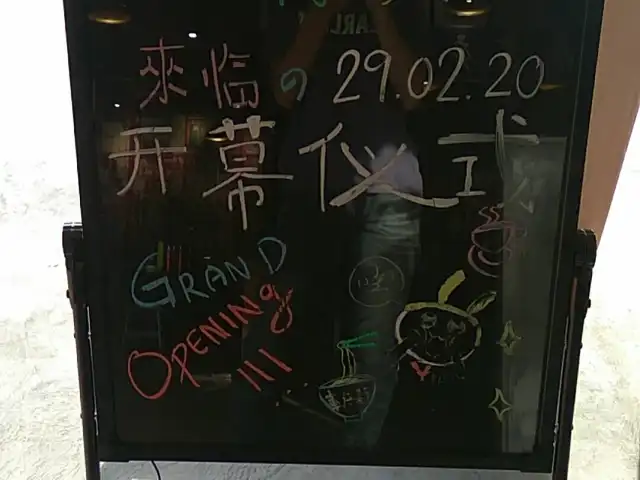 來临の29.02.20
开幕仪式
GRAND
OPENING
!!!